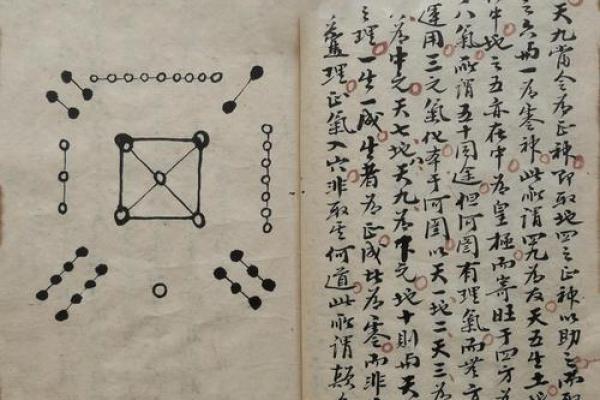 天九當令為正神即取地四之正神以助之而取
之六為一為零神此所謂四九為友天五生土
中地之五亦在中為皇極而寄旺于四方
八氣所謂五十同途但河圖有理氣而無方
運用三元氣化本于河圖以天一地二天三為
為中元天七地天九為下元地十則兩天
之理一生一成生者為正成此為零而非
理正氣入穴非取其何道此所謂顛